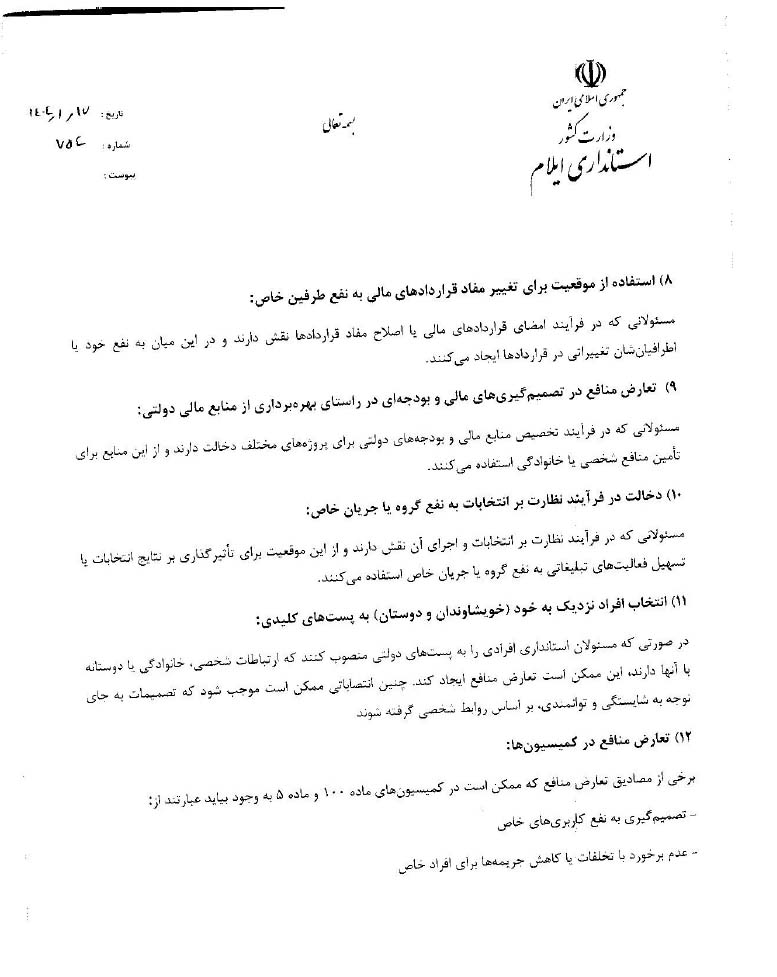 جمهوری اسلامی ایران
وزارت کشور
استانداری ایلام
بسمه تعالی
تاریخ: ۱۴۰۴/۱/۱۷
شماره: ۷۵۴
پیوست:
۸) استفاده از موقعیت برای تغییر مفاد قراردادهای مالی به نفع طرفین خاص:
مسئولانی که در فرآیند امضای قراردادهای مالی یا اصلاح مفاد قراردادها نقش دارند و در این میان به نفع خود یا
اطرافیان‌شان تغییراتی در قراردادها ایجاد می‌کنند.
۹) تعارض منافع در تصمیم‌گیری‌های مالی و بودجه‌ای در راستای بهره‌برداری از منابع مالی دولتی:
مسئولانی که در فرآیند تخصیص منابع مالی و بودجه‌های دولتی برای پروژه‌های مختلف دخالت دارند و از این منابع برای
تأمین منافع شخصی یا خانوادگی استفاده می‌کنند.
۱۰) دخالت در فرآیند نظارت بر انتخابات به نفع گروه یا جریان خاص:
مسئولانی که در فرآیند نظارت بر انتخابات و اجرای آن نقش دارند و از این موقعیت برای تأثیرگذاری بر نتایج انتخابات یا
تسهیل فعالیت‌های تبلیغاتی به نفع گروه یا جریان خاص استفاده می‌کنند.
۱۱) انتخاب افراد نزدیک به خود (خویشاوندان و دوستان) به پست‌های کلیدی:
در صورتی که مسئولان استانداری افرادی را به پست‌های دولتی منصوب کنند که ارتباطات شخصی، خانوادگی یا دوستانه
با آنها دارند، این ممکن است تعارض منافع ایجاد کند. چنین انتصاباتی ممکن است موجب شود که تصمیمات به جای
توجه به شایستگی و توانمندی، بر اساس روابط شخصی گرفته شوند
۱۲) تعارض منافع در کمیسیون‌ها:
برخی از مصادیق تعارض منافع که ممکن است در کمیسیون‌های ماده ۱۰۰ و ماده ۵ به وجود بیاید عبارتند از:
- تصمیم‌گیری به نفع کاربری‌های خاص
- عدم برخورد با تخلفات یا کاهش جریمه‌ها برای افراد خاص